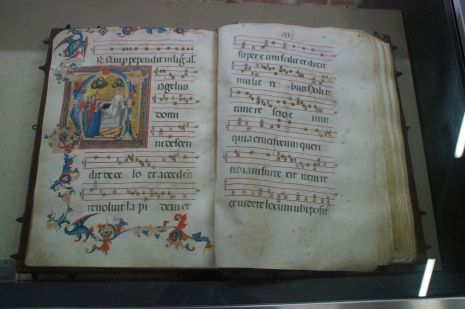 ngelus
domi
ni descen
dit de ce lo et acceden
reuoluit la pi dem et
super e um sedit et dixit
mulie ri bus Nolit
time re scio e nim
quia crucifixum queri
iam surre xit ueni te
et uidete locum ubi posit